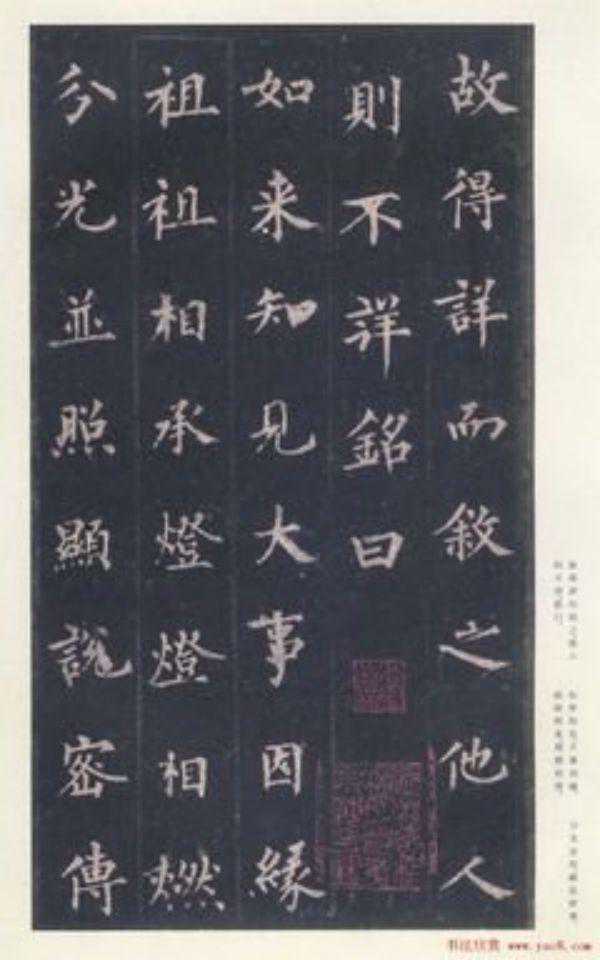 故得詳而敘之他人
則不詳銘曰
如来知見大事因緣
祖祖相承燈燈相燃
分光並照顯說密傳
书法欣赏 www.yac8.com